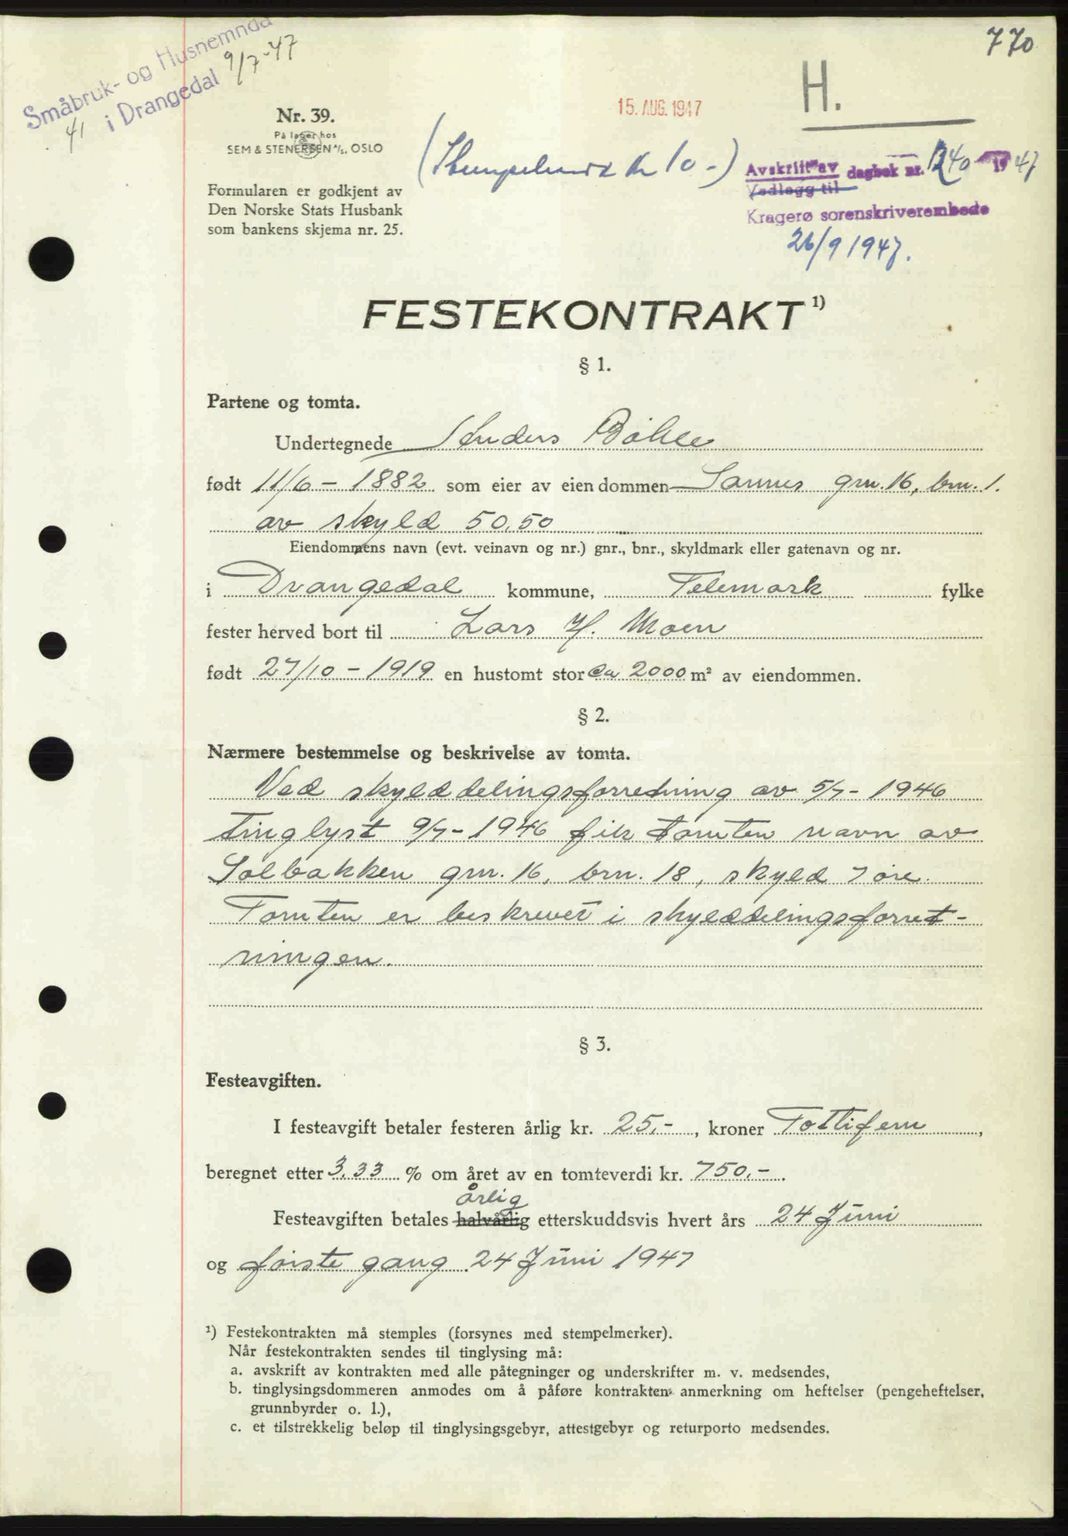 770
Småbruk- og Husnemnda
i Drangedal 9/7-47
41
H.
15. AUG. 1947
Nr. 39.
På lager hos
SEM & STENERSEN A/S, OSLO
kr 10.-)
Avskrift av dagbok nr. 1240 1947
Vedlegg til
Kragerø sorenskriverembede
26/9 1947.
Formularen er godkjent av
Den Norske Stats Husbank
som bankens skjema nr. 25.
FESTEKONTRAKT 1)
§ 1.
Partene og tomta.
Undertegnede Anders Bøhle
født 11/6 - 1882 som eier av eiendommen Sannes grn. 16, brn. 1.
av skyld 50.50
Eiendommens navn (evt. veinavn og nr.) gnr., bnr., skyldmark eller gatenavn og nr.
i Drangedal kommune, Telemark fylke
fester herved bort til Lars H. Moen
født 27/10 - 1919 en hustomt stor ca 2000 m² av eiendommen.
§ 2.
Nærmere bestemmelse og beskrivelse av tomta.
Ved skylddelingsforretning av 5/7 - 1946
tinglyst 9/7 - 1946 fik tomten navn av
Solbakken grn. 16, brn. 18, skyld 7 øre.
Tomten er beskrevet i skylddelingsforret-
ningen.
§ 3.
Festeavgiften.
I festeavgift betaler festeren årlig kr. 25.-, kroner Tottifem,
beregnet etter 3,33 % om året av en tomteverdi kr. 750.-.
årlig
Festeavgiften betales halvårlig etterskuddsvis hvert års 24 Juni
og første gang 24 Juni 1947
1) Festekontrakten må stemples (forsynes med stempelmerker).
Når festekontrakten sendes til tinglysing må:
a. avskrift av kontrakten med alle påtegninger og underskrifter m. v. medsendes,
b. tinglysingsdommeren anmodes om å påføre kontrakten anmerkning om heftelser (pengeheftelser,
grunnbyrder o. l.),
c. et tilstrekkelig beløp til tinglysingsgebyr, attestgebyr og returporto medsendes.